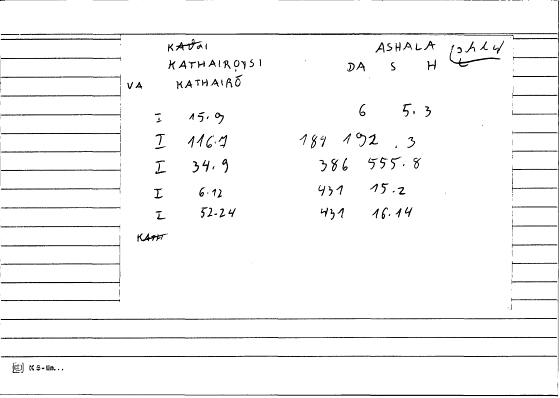 ASHALA
KATHAIROYSI DA S H
VA KATHAIRŌ
I 15.9 6 5.3
I 116.9 184 192.3
I 34.9 386 555.8
I 6.12 431 15.2
I 52-24 431 16.14